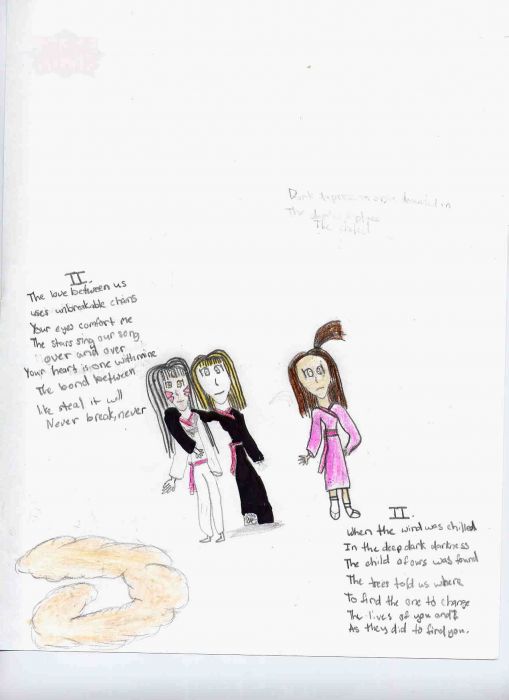 Dark
The
The
II.
The love between us
uses unbreakable chains
Your eyes comfort me
The stars sing our song
over and over
Your heart is one with mine
The bond between
like steal it will
Never break, never
II.
When the wind was chilled
In the deep dark darkness
The child of ours was found
The trees told us where
To find the one to change
The lives of you and I
As they did to find you.